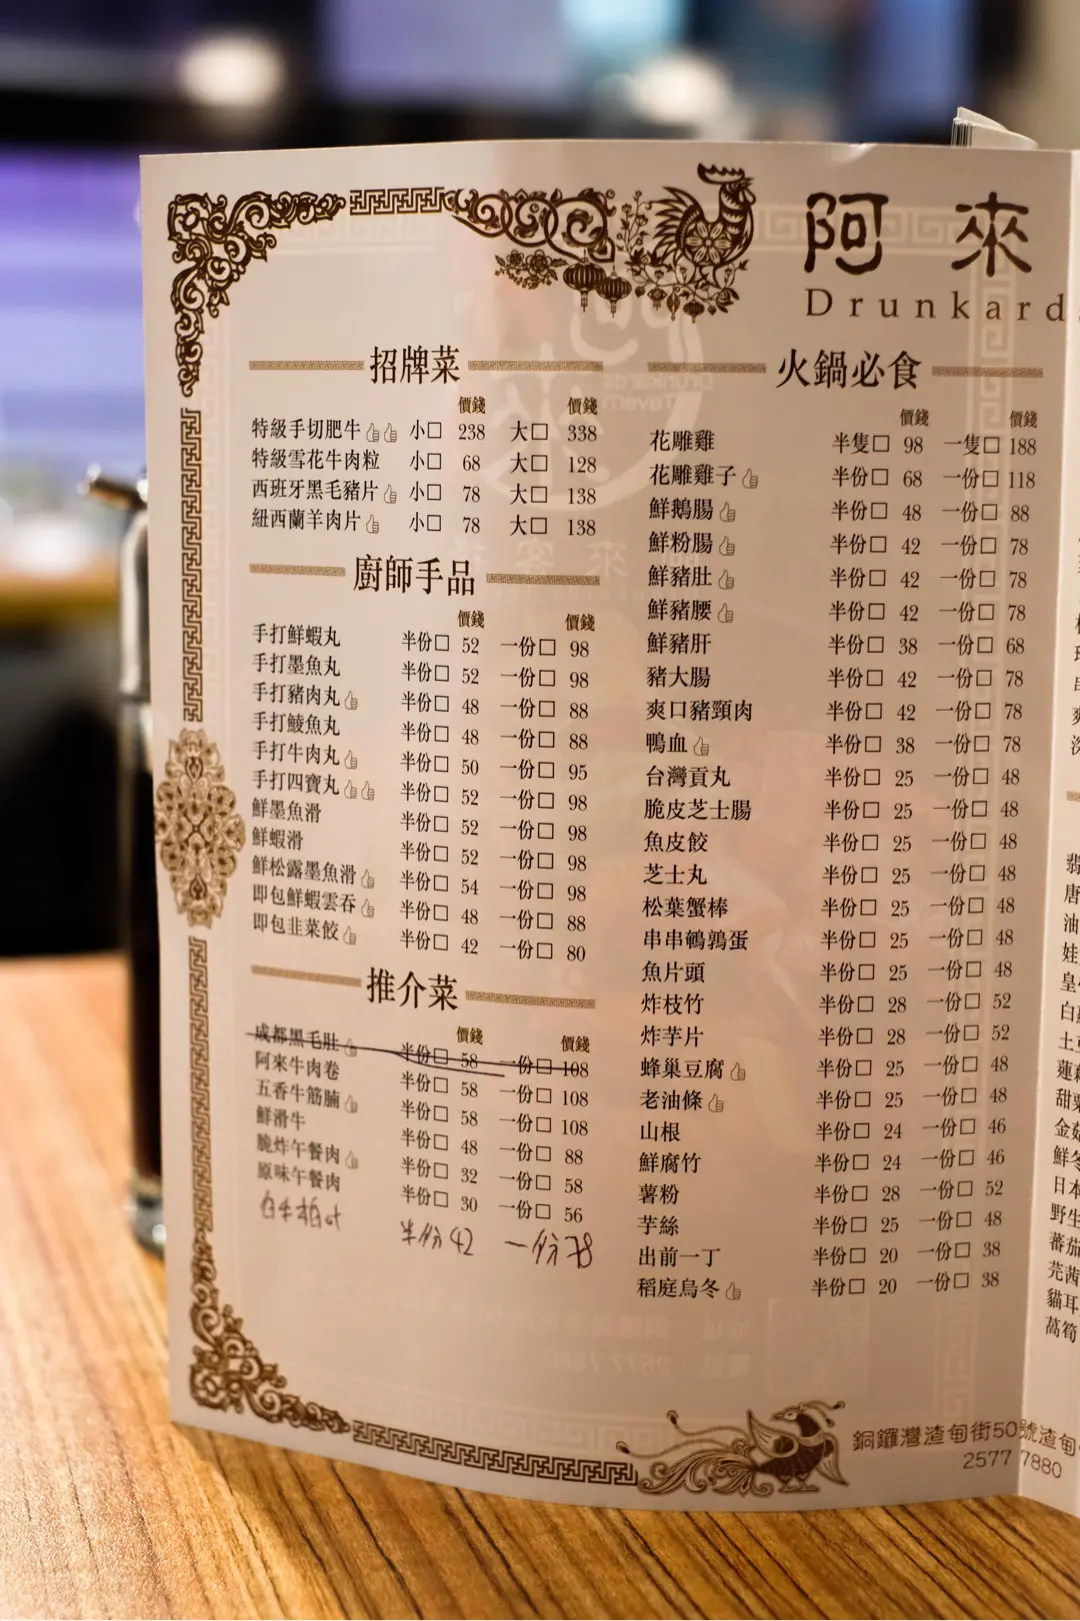 阿來
Drunkards
招牌菜
價錢 價錢
特級手切肥牛 小□ 238 大□ 338
特級雪花牛肉粒 小□ 68 大□ 128
西班牙黑毛豬片 小□ 78 大□ 138
紐西蘭羊肉片 小□ 78 大□ 138
廚師手品
價錢 價錢
手打鮮蝦丸 半份□ 52 一份□ 98
手打墨魚丸 半份□ 52 一份□ 98
手打豬肉丸 半份□ 48 一份□ 88
手打鯪魚丸 半份□ 48 一份□ 88
手打牛肉丸 半份□ 50 一份□ 95
手打四寶丸 半份□ 52 一份□ 98
鮮墨魚滑 半份□ 52 一份□ 98
鮮蝦滑 半份□ 52 一份□ 98
鮮松露墨魚滑 半份□ 54 一份□ 98
即包鮮蝦雲吞 半份□ 48 一份□ 88
即包韭菜餃 半份□ 42 一份□ 80
推介菜
價錢 價錢
成都黑毛肚 半份□ 58 一份□ 108
阿來牛肉卷 半份□ 58 一份□ 108
五香牛筋腩 半份□ 58 一份□ 108
鮮滑牛 半份□ 48 一份□ 88
脆炸午餐肉 半份□ 32 一份□ 58
原味午餐肉 半份□ 30 一份□ 56
半份 42 一份 78
火鍋必食
價錢 價錢
花雕雞 半隻□ 98 一隻□ 188
花雕雞子 半份□ 68 一份□ 118
鮮鵝腸 半份□ 48 一份□ 88
鮮粉腸 半份□ 42 一份□ 78
鮮豬肚 半份□ 42 一份□ 78
鮮豬腰 半份□ 42 一份□ 78
鮮豬肝 半份□ 38 一份□ 68
豬大腸 半份□ 42 一份□ 78
爽口豬頸肉 半份□ 42 一份□ 78
鴨血 半份□ 38 一份□ 78
台灣貢丸 半份□ 25 一份□ 48
脆皮芝士腸 半份□ 25 一份□ 48
魚皮餃 半份□ 25 一份□ 48
芝士丸 半份□ 25 一份□ 48
松葉蟹棒 半份□ 25 一份□ 48
串串鵪鶉蛋 半份□ 25 一份□ 48
魚片頭 半份□ 25 一份□ 48
炸枝竹 半份□ 28 一份□ 52
炸芋片 半份□ 28 一份□ 52
蜂巢豆腐 半份□ 25 一份□ 48
老油條 半份□ 25 一份□ 48
山根 半份□ 24 一份□ 46
鮮腐竹 半份□ 24 一份□ 46
薯粉 半份□ 28 一份□ 52
芋絲 半份□ 25 一份□ 48
出前一丁 半份□ 20 一份□ 38
稻庭烏冬 半份□ 20 一份□ 38
銅鑼灣渣甸街50號渣甸
2577 7880
唐
油
娃
皇
白
土
蓮
甜粟
金菇
鮮冬
日本
野生
蕃茄
芫茜
貓耳
萵筍